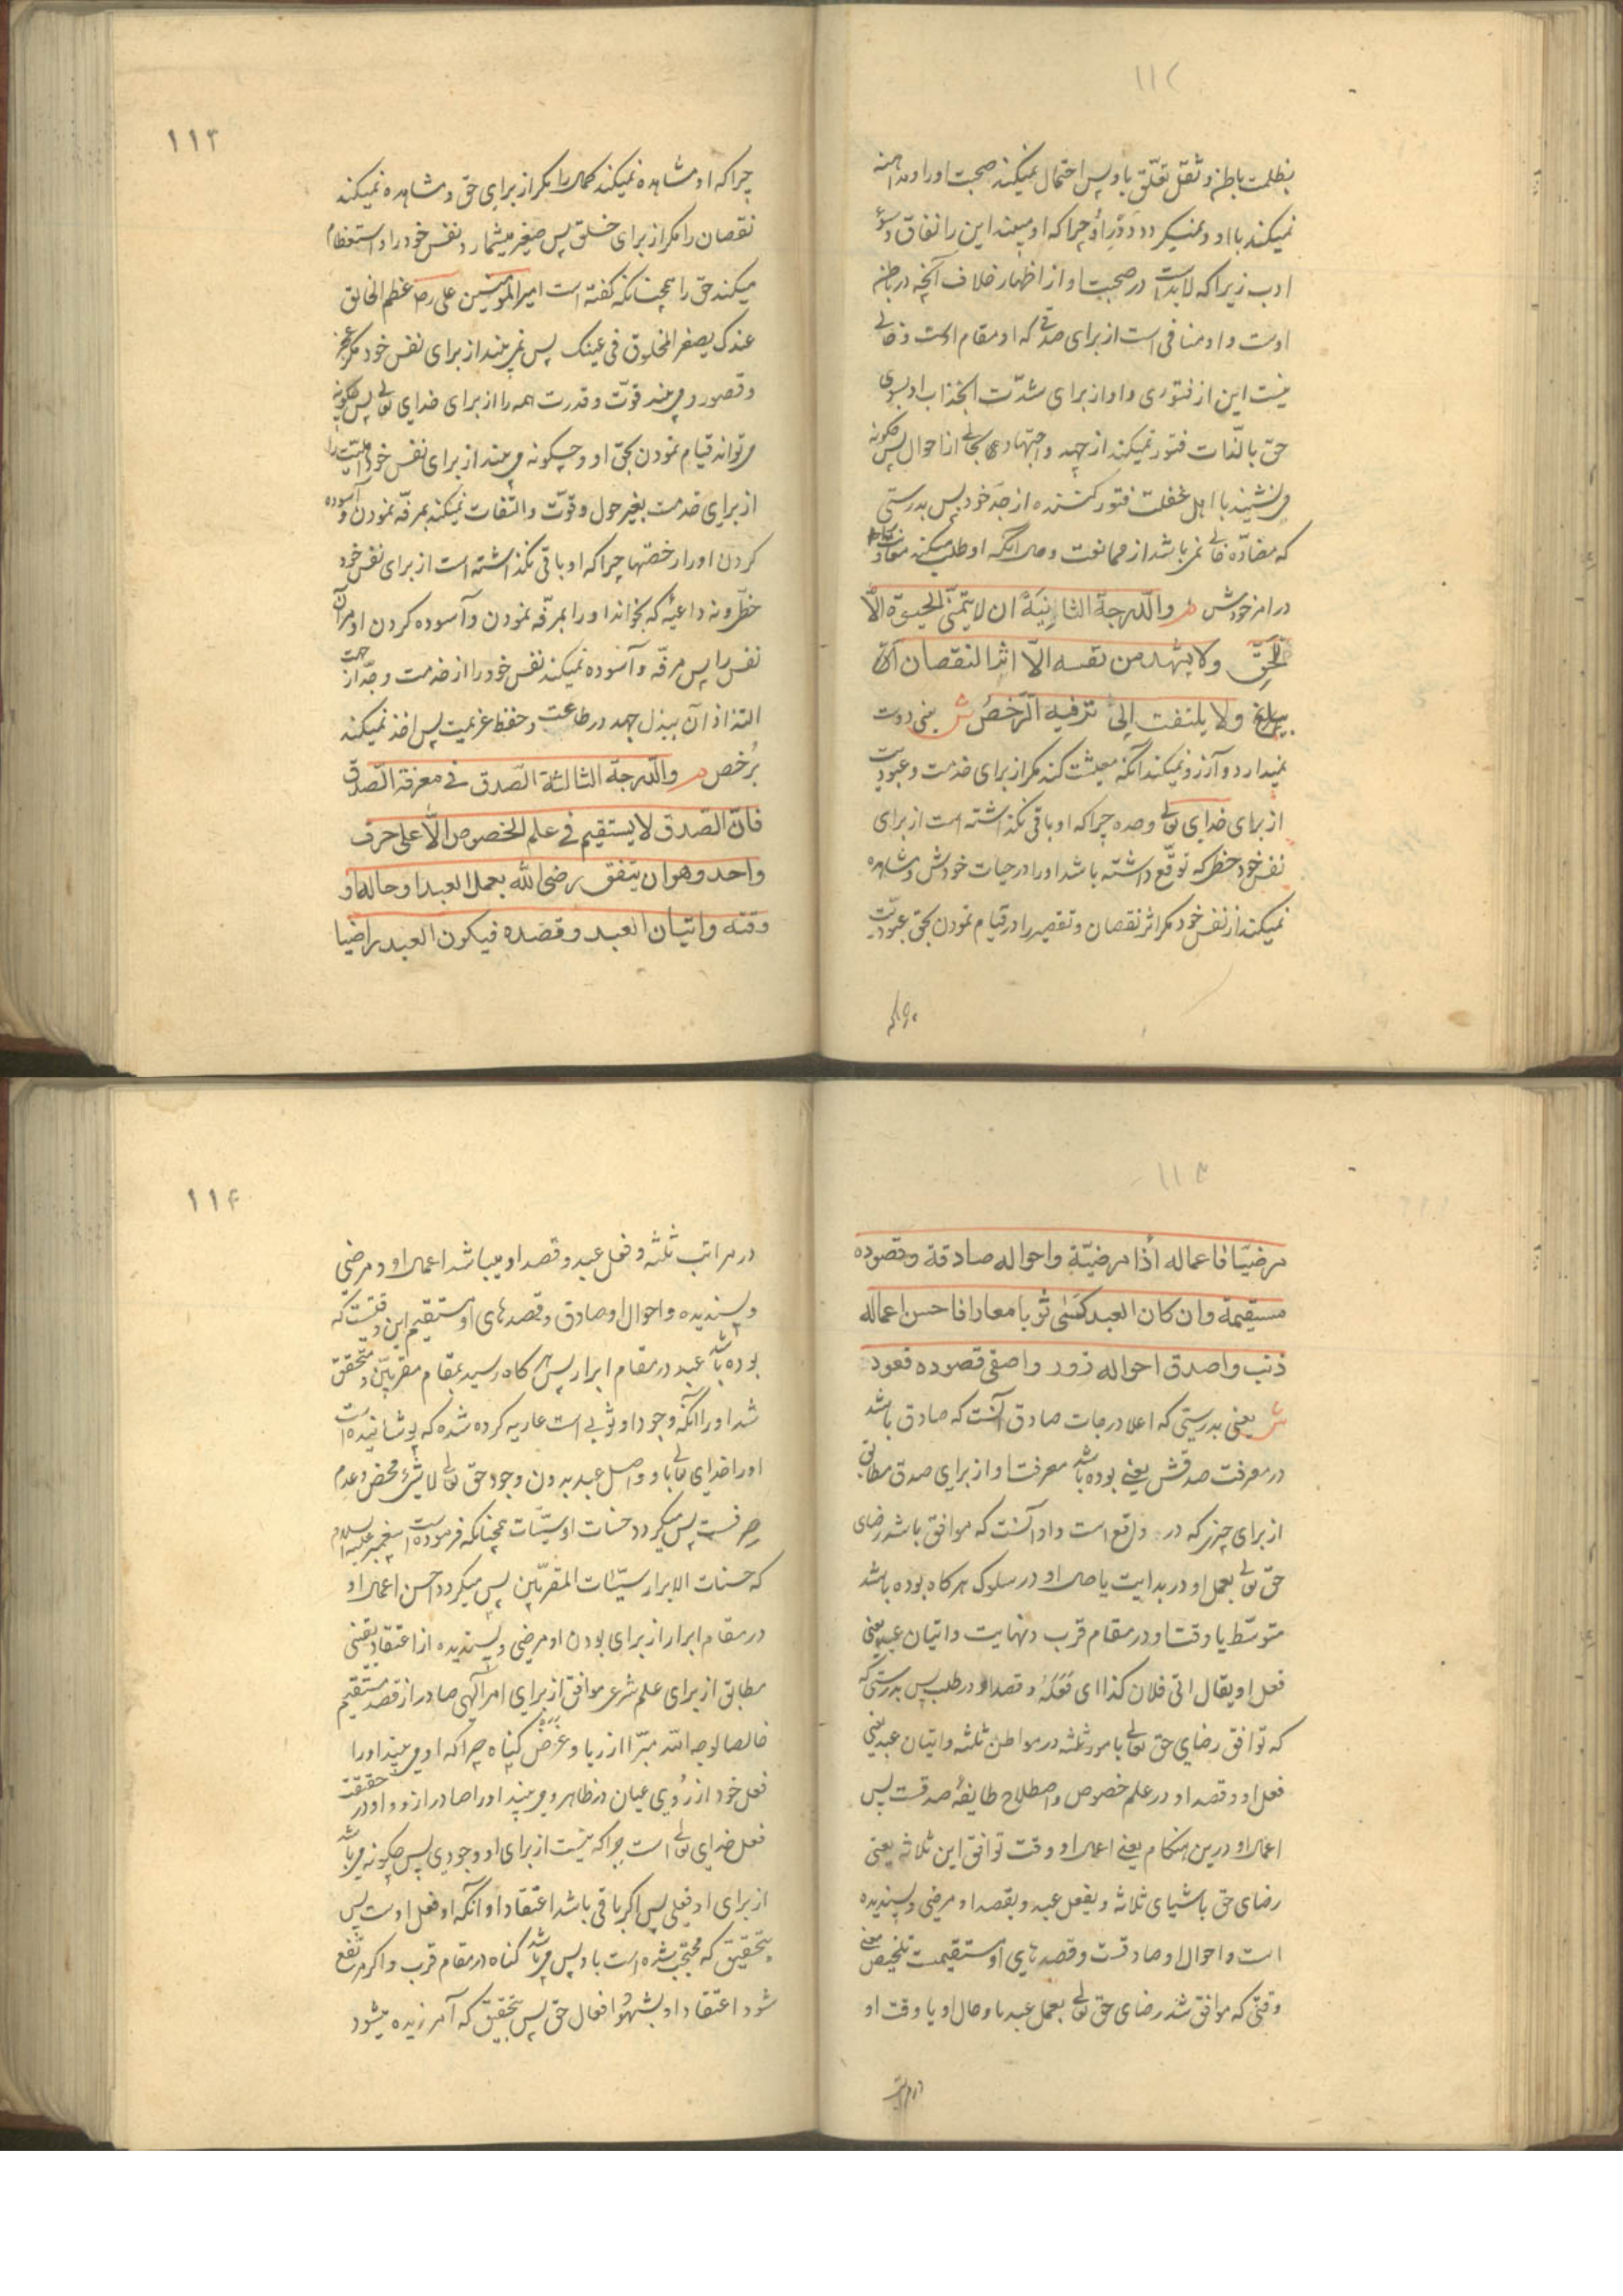 ۱۱۲
بظلمت باطن و ثقل تعلّق باو پس احتمال نمیکند صحبت او را و مداهنه
نمیکند با او و نمیگردد دَورِ او چرا که او میبیند این را نفاق و سوء
ادب زیرا که لابدست در صحبت او از اظهار خلاف آنچه در باطن
اوست و او منافی است از برای صدقی که او مقام اوست و خالی
نیست این از فتوری و او از برای شدّت انجذاب او بسوی
حق بالذات فتور نمیکند از جهد و اجتهاد بحالی از احوال پس چگونه
می‌نشیند با اهل غفلت فتور کننده از جدّ خود پس بدرستی
که مضادّه خالی نمی‌باشد از ممانعت و حال آنکه او طلب میکند معاونت
در امر خودش م والدرجة الثانیة ان لا یتمنّی الحیوة الّا
للحقّ ولا یشهد من نفسه الّا اثر النقصان
ولا یلتفت الی ترفیه الرّخص ش یعنی دوست
نمیدارد و آرزو نمیکند آنکه معیشت کند مگر از برای خدمت و عبودیت
از برای خدای تعالی وحده چرا که او باقی نگذاشته است از برای
نفس خود حظی که توقّع داشته باشد او را در حیات خودش و مشاهده
نمیکند از نفس خود مگر اثر نقصان و تقصیر را در قیام نمودن بحق عبودیّت
چرا که
۱۱۳
چرا که او مشاهده نمیکند کمال را مگر از برای حق و مشاهده نمیکند
نقصان را مگر از برای خلق پس صغیر میشمارد نفس خود را و استعظام
میکند حق را همچنانکه گفته است امیرالمؤمنین علی رض عظم الخالق
عندک یصغر المخلوق فی عینک پس نمی‌بیند از برای نفس خود مگر عجز
و قصور و می‌بیند قوّت و قدرت همه را از برای خدای تعالی پس چگونه
می‌تواند قیام نمودن بحق او و چگونه می‌بیند از برای نفس خود اهلیّت را
از برای خدمت بغیر حول و قوّت و التفات نمیکند بمرفّه نمودن و آسوده
کردن او را رخصتها چرا که او باقی نگذاشته است از برای نفس خود
حظّی و نه داعیهٔ که بخواند او را بمرفّه نمودن و آسوده کردن او مر آن
نفس را پس مرفّه و آسوده نمیکند نفس خود را از خدمت و جدّ از جهت
التذاذ آن ببذل جهد در طاعت و حفظ عزیمت پس اخذ نمیکند
برُخص م والدرجة الثالثة الصّدق فی معرفة الصّدق
فانّ الصّدق لا یستقیم فی علم الخصوص الّا علی حرف
واحد وهو ان یتفق رضی الله بعمل العبد او حاله او
وقته واتیان العبد وقصده فیکون العبد راضیا
۱۱۳
مرضیّا فاعماله اذا مرضیّة واحواله صادقة وقصوده
مستقیمة وان کان العبد کسی ثوبا معارا فاحسن اعماله
ذنب واصدق احواله زور واصفی قصوده قعود
ش یعنی بدرستی که اعلا درجات صادق آنست که صادق باشد
در معرفت صدقش یعنی بوده باشد معرفت او از برای صدق مطابق
از برای چیزی که در واقع است و او آنست که موافق باشد رضای
حق تعالی بعمل او در بدایت یا حال او در سلوک هرگاه بوده باشد
متوسّط یا وقت او در مقام قرب و نهایت و اتیان عبد یعنی
فعل او یقال اتی فلان کذا ای فَعَلَهُ و قصد او در طلب پس بدرستی که
که توافق رضای حق تعالی بامور ثلثه در مواطن ثلثه و اتیان عبد یعنی
فعل او و قصد او در علم خصوص و اصطلاح طایفهٔ صدقست پس
اعمال او درین هنگام یعنی اعمال او وقت توافق این ثلاثه یعنی
رضای حق باشیای ثلاثه و بفعل عبد و بقصد او مرضی و پسندیده
است و احوال او صادقست و قصدهای او مستقیمست تلخیص معنی
وقتی که موافق شد رضای حق تعالی بعمل عبد یا و حال او یا وقت او
در مراتب
۱۱۴
در مراتب ثلثه و فعل عبد و قصد او میباشد اعمال او و مرضی
و پسندیده و احوال او صادق و قصدهای او مستقیم این وقتیست که
بوده باشد عبد در مقام ابرار پس هرگاه رسید بمقام مقربین و متحقق
شد او را آنکه وجود او ثوبی است عاریه کرده شده که پوشانیده است
او را خدای تعالی باو و اصل عبد بدون وجود حق تعالی لاشیء محض و عدم
صرفست پس میگردد حسنات او سیّئات همچنانکه فرموده است پیغمبر علیه السلام
که حسنات الابرار سیّئات المقرّبین پس میگردد احسن اعمال او
در مقام ابرار از برای بودن او مرضی و پسندیده از اعتقاد یقینی
مطابق از برای علم شرع موافق از برای امر آلهی صادر از قصد مستقیم
خالصا لوجه الله مبرّا از ریا و غَرَض گناه چرا که او می‌بیند او را
فعل خود از رُوی عیان در ظاهر و می‌بیند او را صادر ازو و او در حقیقت
فعل خدای تعالی است چرا که نیست از برای او وجودی پس چگونه می‌باشد
از برای او فعلی پس اگر باقی باشد اعتقاد او آنکه او فعل اوست پس
بتحقیق که محتجب شده است باو پس می‌باشد گناه در مقام قرب و اگر مرتفع
شود اعتقاد او بشهود افعال حق پس بتحقیق که آمرزیده میشود